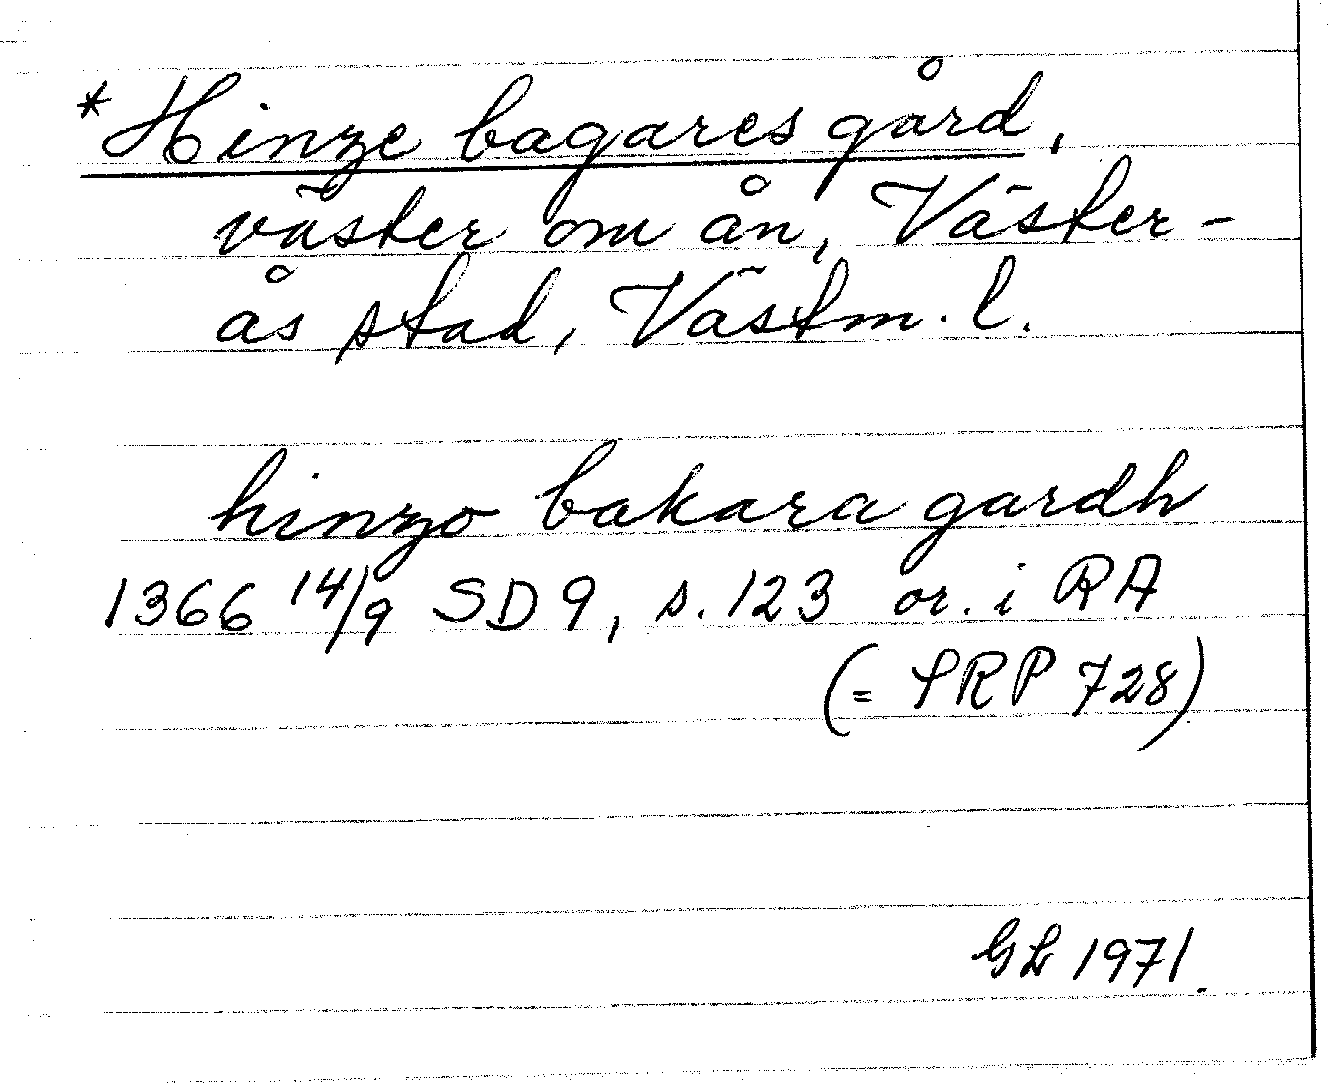 *Hinze bagares gård,
väster om ån, Väster-
ås stad, Västm. l.
hinzo bakara gardh
1366 14/9 SD 9, s. 123 or. i RA
(= SRP 728)
GL 1971.